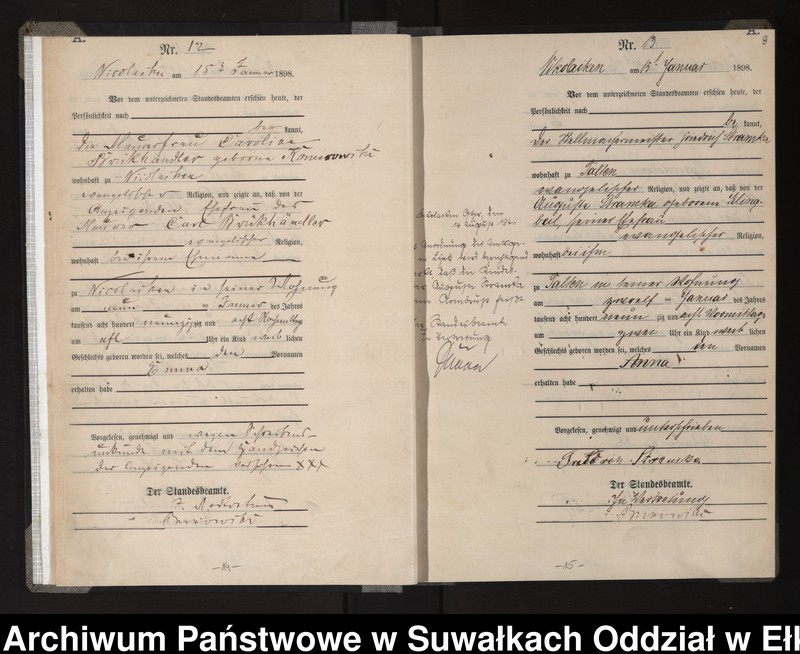 A.
Nr. 12
Nicolaiken am 15 Januar 1898.
Vor dem unterzeichneten Standesbeamten erschien heute, der
Persönlichkeit nach
be kannt,
die Maurerfrau Caroline
geborne Komorowski
wohnhaft zu Nicolaiken
evangelischer Religion, und zeigte an, daß von der
Anzeigenden Ehefrau des
Maurer Carl
evangelischer Religion,
wohnhaft bei ihrem Ehemanne
zu Nicolaiken in seiner Wohnung
am neun Januar des Jahres
tausend acht hundert neunzig und acht Nachmittag
um acht Uhr ein Kind weib lichen
Geschlechts geboren worden sei, welches den Vornamen
Emma
erhalten habe
Vorgelesen, genehmigt und wegen Schreibens-
unkunde mit dem Handzeichen
der Anzeigenden versehen XXX
Der Standesbeamte.
-14-
A.
8
Nr. 13
Nikolaiken am 13 Januar 1898.
Vor dem unterzeichneten Standesbeamten erschien heute, der
Persönlichkeit nach
be kannt,
Der Stellmachermeister Friedrich Stramka
wohnhaft zu Talten
evangelischer Religion, und zeigte an, daß von der
Auguste Stramka geborene Kling-
beil seiner Ehefrau
evangelischer Religion,
wohnhaft bei ihm
zu Talten in seiner Wohnung
am zwoelf Januar des Jahres
tausend acht hundert neun zig und acht Vormittags
um zwei Uhr ein Kind weib lichen
Geschlechts geboren worden sei, welches den Vornamen
Anna
erhalten habe
Vorgelesen, genehmigt und unterschrieben
Friedrich Stramka
Der Standesbeamte.
In Vertretung
-15-
Der Standesbeamte
In Vertretung
Archiwum Państwowe w Suwałkach Oddział w Ełk